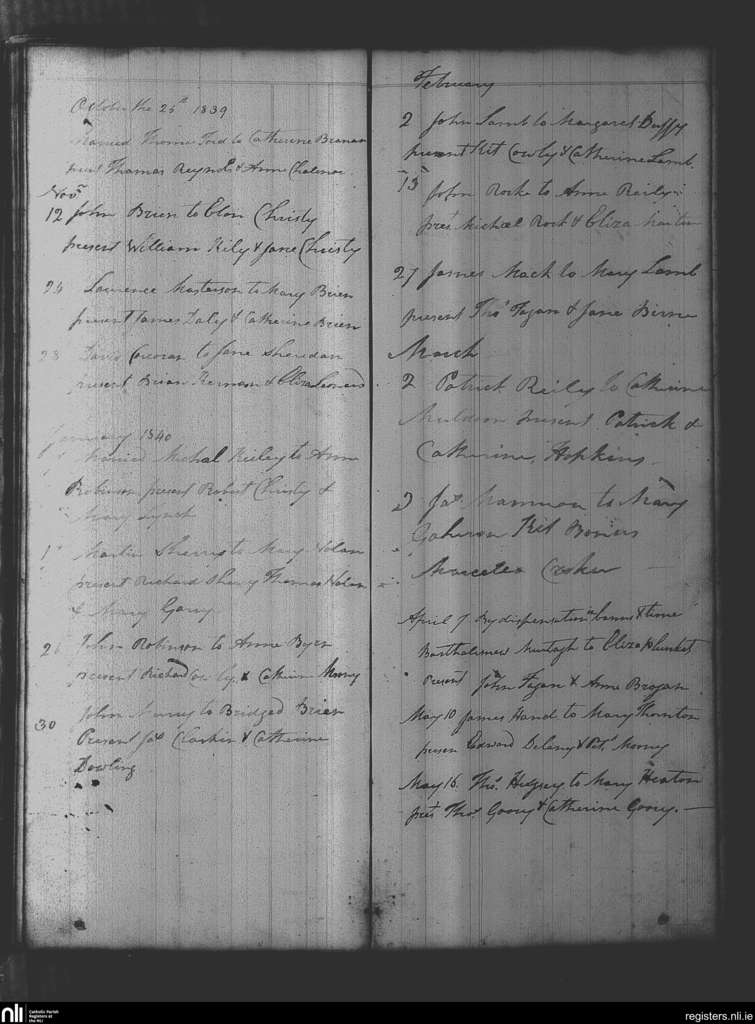 October the 25th 1839
Married Thomas Ford to Catherine Branan
prest Thomas Reynols & Anne
Novr
12 John Brien to Elon Christy
present William Kily & Jane Christy
24 Lawrence Masterson to Mary Brien
present James Daly & Catherine Brien
28 Corcoran to Jane Sheridan
present Brian Kernan & Eliza Leonard
January 1840
Married Michal Reiley to Anne
Robinson present Robert Christy &
Mary Lynch
Martin Sherry to Mary Nolan
present Richard Sherry Thomas Nolan
& Mary Gorry
John Robinson to Anne Byrn
present Richard Cowly & Catherin Murry
30 John Murry to Bridged Brien
Present Jas Clarkin & Catherine
Dowling
February
2 John Lamb to Margaret Duffy
present Kit Cowly & Catherine Lamb.
13 John Rorke to Anne Reily
prest Micheal Rork & Eliza Martin
27 James Mack to Mary Lamb
present Thos Fagan & Jane Birne
March
2 Patrick Reily to Catherine
Muldoon present Patrick &
Catherine Hopkins
2 Jas to Mary
Kit
Croker
April 7 By dispensation in banns & time
Bartholemew Murtagh to Eliza Plunket
Present John Fagan & Anne Brogan
May 10 James Hand to Mary Thornton
presen Edward Delany & Murry
May 16. Thos. to Mary Heaton
prest Thos Goory & Catherine Goory.
nli
Catholic Parish
Registers at
the NLI
registers.nli.ie